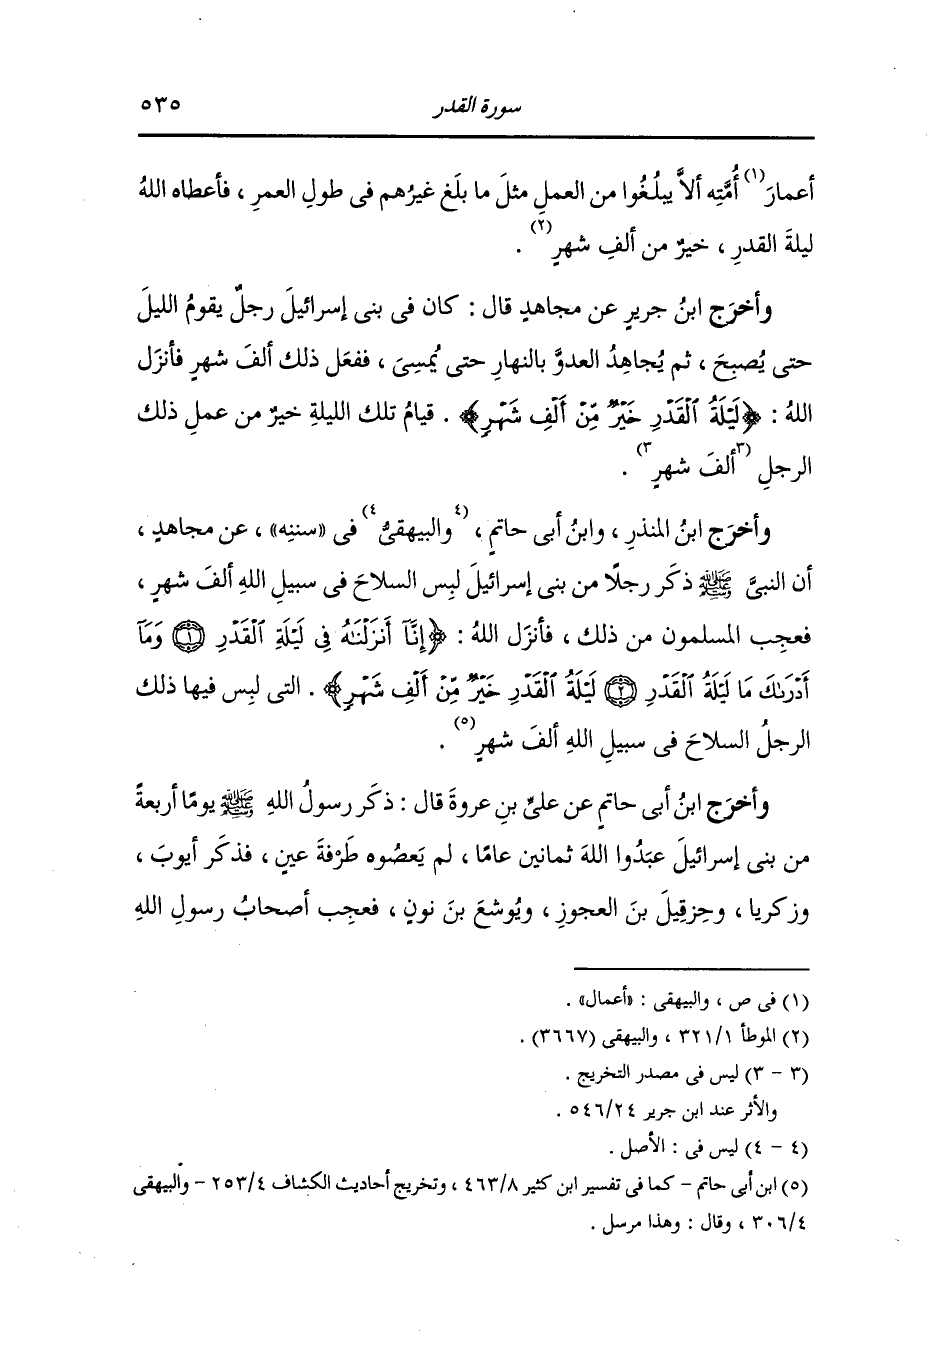 سورة القدر ٥٣٥
أعمارَ(١) أُمَّتِه ألاَّ يبلُغُوا من العملِ مثلَ ما بلَغ غيرُهم فى طولِ العمرِ ، فأعطاه اللهُ
ليلةَ القدرِ ، خيرٌ من ألفِ شهرٍ(٢) .
وأخرَج ابنُ جريرٍ عن مجاهدٍ قال : كان فى بنى إسرائيلَ رجلٌ يقومُ الليلَ
حتى يُصبِحَ ، ثم يُجاهِدُ العدوَّ بالنهارِ حتى يُمسِىَ ، ففعَل ذلك ألفَ شهرٍ فأنزَل
اللهُ : ﴿لَيْلَةُ ٱلْقَدْرِ خَيْرٌ مِّنْ أَلْفِ شَهْرٍ﴾ . قيامُ تلك الليلةِ خيرٌ من عملِ ذلك
الرجلِ (٣ألفَ شهرٍ٣) .
وأخرَج ابنُ المنذرِ ، وابنُ أبى حاتمٍ ، (٤والبيهقىُّ٤) فى «سننِه» ، عن مجاهدٍ ،
أن النبىَّ ﷺ ذكَر رجلًا من بنى إسرائيلَ لبِس السلاحَ فى سبيلِ اللهِ ألفَ شهرٍ ،
فعجِب المسلمون من ذلك ، فأنزَل اللهُ : ﴿إِنَّآ أَنزَلْنَٰهُ فِى لَيْلَةِ ٱلْقَدْرِ ۝١ وَمَآ
أَدْرَىٰكَ مَا لَيْلَةُ ٱلْقَدْرِ ۝٢ لَيْلَةُ ٱلْقَدْرِ خَيْرٌ مِّنْ أَلْفِ شَهْرٍ﴾ . التى لبِس فيها ذلك
الرجلُ السلاحَ فى سبيلِ اللهِ ألفَ شهرٍ(٥) .
وأخرَج ابنُ أبى حاتمٍ عن علىِّ بنِ عروةَ قال : ذكَر رسولُ اللهِ ﷺ يومًا أربعةً
من بنى إسرائيلَ عبَدُوا اللهَ ثمانين عامًا ، لم يَعصُوه طَرْفةَ عينٍ ، فذكَر أيوبَ ،
وزكريا ، وحِزقِيلَ بنَ العجوزِ ، ويُوشعَ بنَ نونٍ ، فعجِب أصحابُ رسولِ اللهِ
(١) فى ص ، والبيهقى : «أعمال» .
(٢) الموطأ ٣٢١/١ ، والبيهقى (٣٦٦٧) .
(٣ - ٣) ليس فى مصدر التخريج .
والأثر عند ابن جرير ٥٤٦/٢٤ .
(٤ - ٤) ليس فى : الأصل .
(٥) ابن أبى حاتم - كما فى تفسير ابن كثير ٤٦٣/٨ ، وتخريج أحاديث الكشاف ٢٥٣/٤ - والبيهقى
٣٠٦/٤ ، وقال : وهذا مرسل .